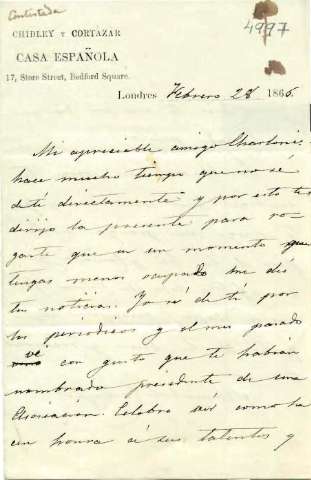 Contestada
4997
CHIDLEY Y CORTAZAR
CASA ESPAÑOLA
17, Store Street, Bedford Square.
Londres Febrero 28 1866.
Mi apreciable amigo
hace mucho tiempo que no sé
de ti directamente y por esto te
dirijo la presente para ro-
garte que en un momento que
tengas menos ocupado me dés
tus noticias. Yo sé de tí por
los periodicos y el mes pasado
vé con gusto que te habian
nombrado presidente de una
Asociacion. Celebro así como ha
cen honra á sus talentos y